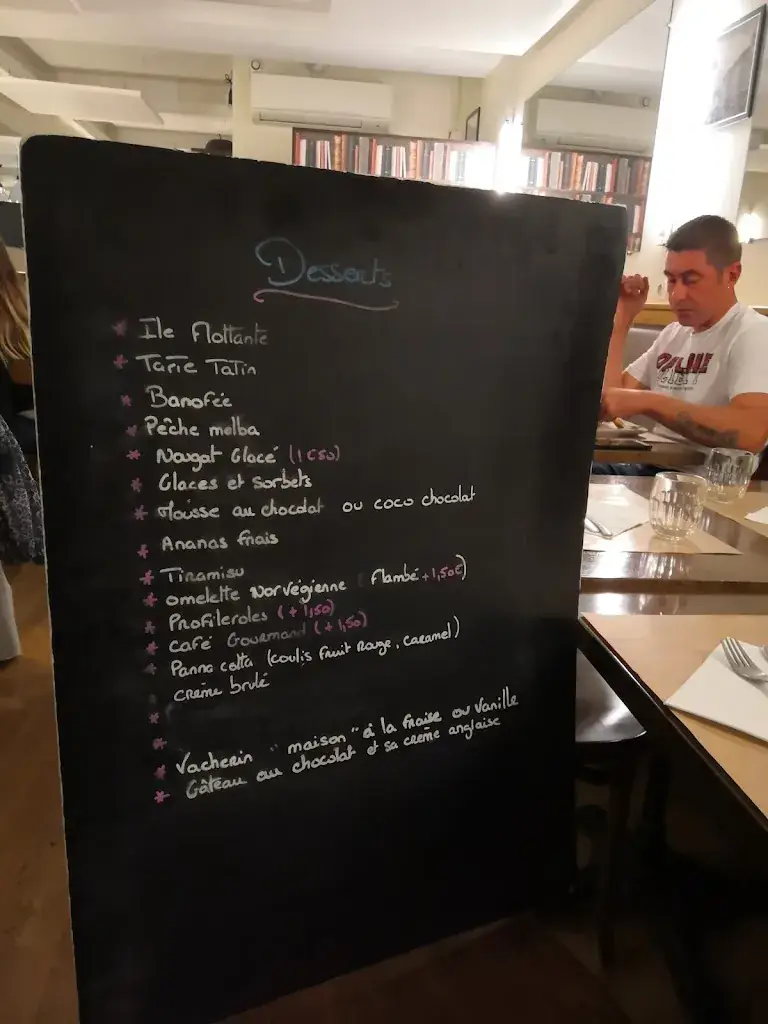 Desserts
* Ile Flottante
* Tarte Tatin
* Banofée
* Pêche melba
* Nougat Glacé (1€50)
* Glaces et sorbets
* Mousse au chocolat ou coco chocolat
* Ananas frais
* Tiramisu
* omelette Norvégienne (Flambé +1,50€)
* Profiteroles (+1,50)
* Café Gourmand (+1,50)
* Panna cotta (coulis fruit Rouge, caramel)
crème brulé
*
*
* Vacherin "maison" à la fraise ou vanille
* Gâteau au chocolat et sa crème anglaise